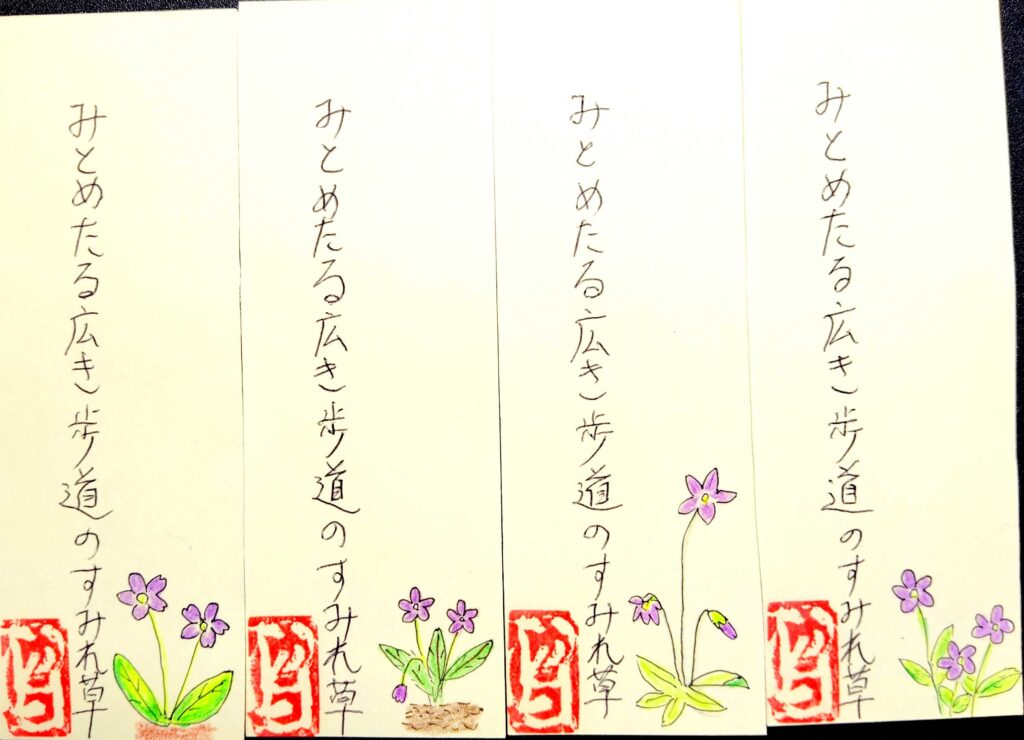 みとめたる広き歩道のすみれ草
みとめたる広き歩道のすみれ草
みとめたる広き歩道のすみれ草
みとめたる広き歩道のすみれ草